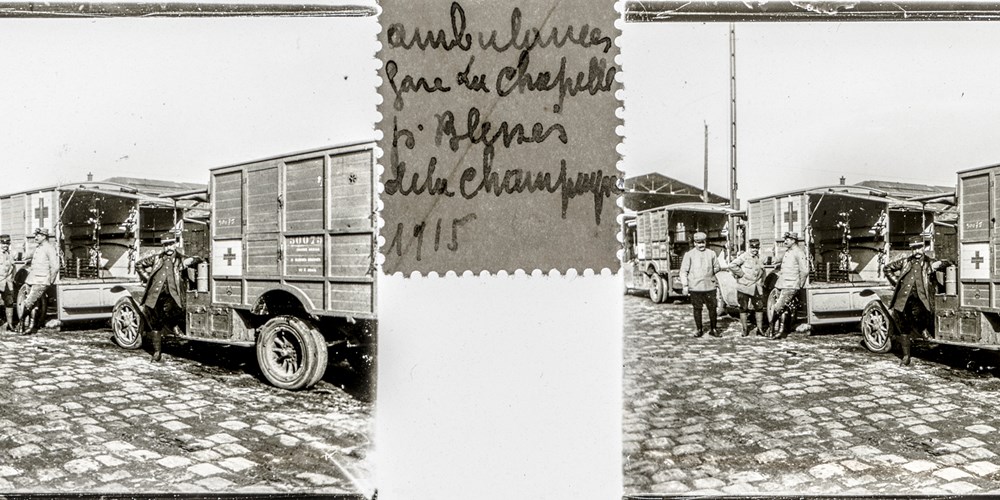 ambulances
gare La Chapelle
pr Blessés
de la Champagne
1915
50075